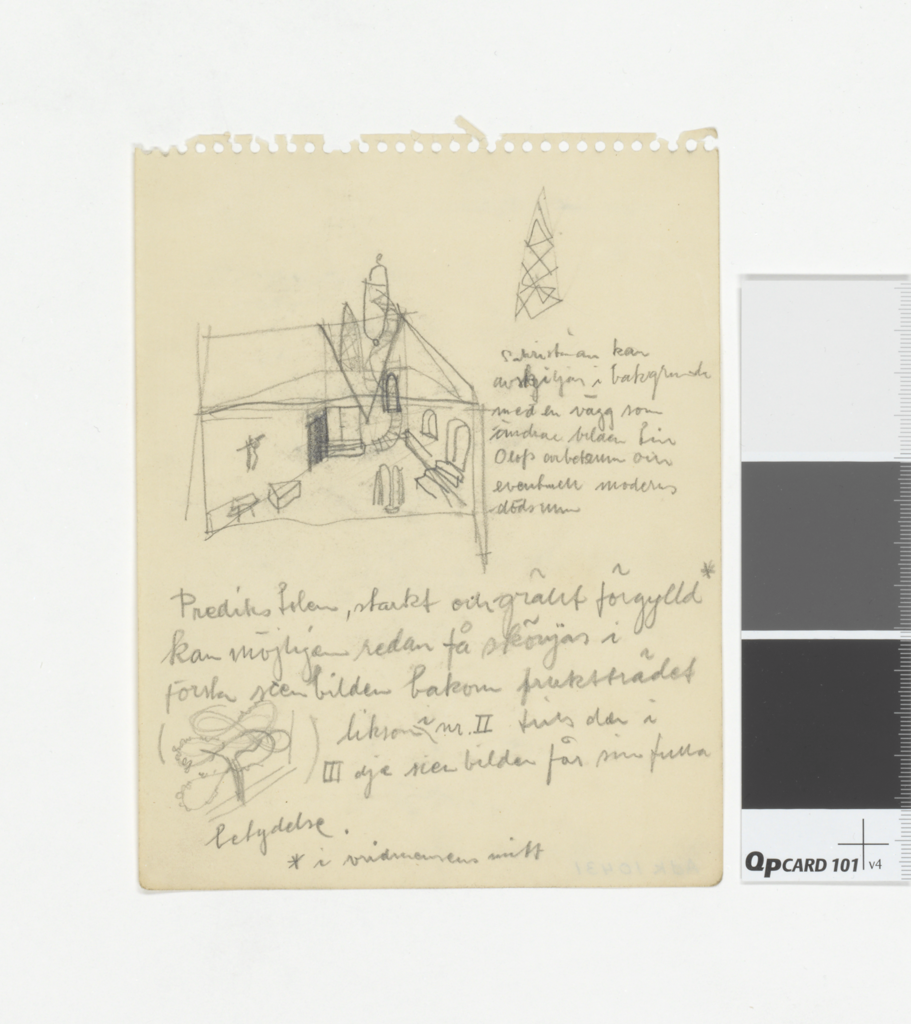 kan
i bakgrunden
med en vägg som
ändrar bilden
Olofs arbetsrum
eventuellt moderns
dödsrum
Predikstolen, starkt och grällt förgylld*
kan möjligen redan få skönjas i
första scenbilden bakom fruktträdet
( ) liksom i nr. II tills den i
III dje scenbilden får sin fulla
betydelse.
* i vridscenens mitt
QPCARD 101 v4